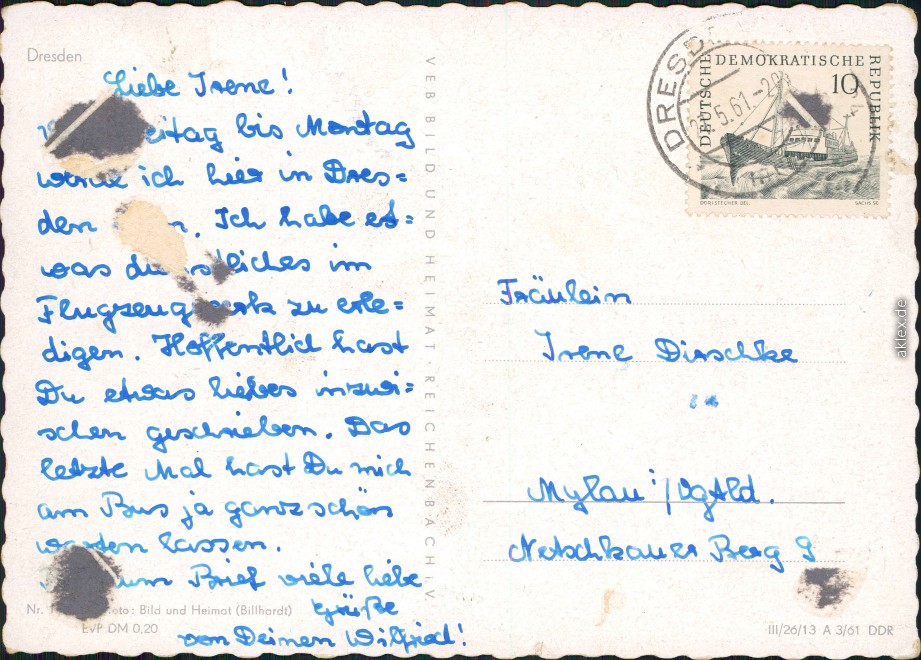 Dresden
Liebe Irene!
bis Montag
ich hier in Dres=
den . Ich habe et=
was im
zu erle=
digen. Hoffentlich hast
Du etwas liebes inzwi=
schen geschrieben. Das
letzte Mal hast Du mich
am Bus ja ganz schön
warten lassen.
Brief viele liebe
Grüße
von Deinen Wilfried!
Nr. Foto: Bild und Heimat (Billhardt)
EVP DM 0,20
VEB BILD UND HEIMAT REICHENBACH i. V.
DRESDEN
5.61-20
DEUTSCHE DEMOKRATISCHE REPUBLIK
10
DORISTECHER DEL. SACHS SC.
Fräulein
Irene Dirschke
Mylau i/Vgtld.
Netschkauer Berg 9
III/26/13 A 3/61 DDR
aklex.de